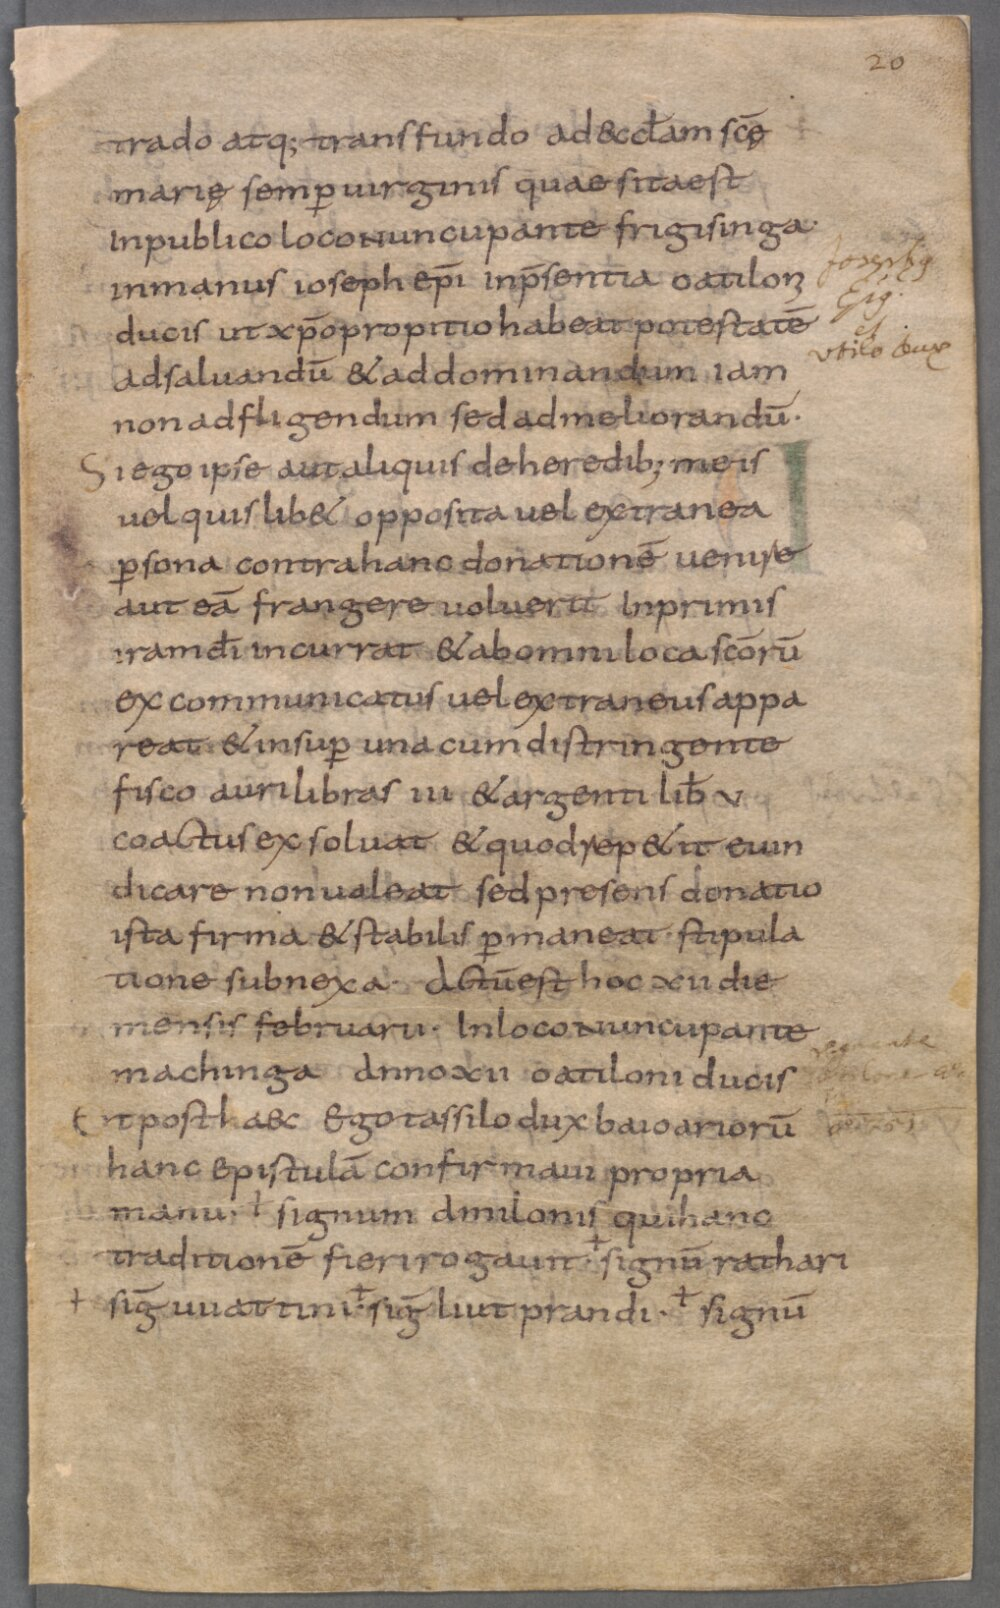 20
trado atq; transfundo ad &ccłam scę̄
marię semp̲ uirginis quae sita est
In publico loco nuncupante frigisinga·
in manus ioseph ep̄i In p̄sentia oatiloꝝ
ducis ut xp̄o propitio habeat potestatē
ad saluandū & ad dominandum iam
non ad fligendum sed ad meliorandū·
Si ego ipse aut aliquis de heredib; meis
uel quislib& opposita uel extranea
p̲sona contra hanc donationē uenire
aut eā frangere uoluerit Inprimis
iram dī incurrat & ab omni loca scōrū
ex communicatus uel extraneus appa
reat & insup̲ una cum distringente
fisco auri libras iii & argenti lib̄ v
coactus ex soluat & quod rep&it euin
dicare non ualeat sed presens donatio
ista firma & stabilis p̲maneat stipula
tione subnexa· Actū est hoc xii die
mensis februarii· In loco nuncupante
machinga Anno xii oatiloni ducis
Et post haec Ego tassilo dux baioariorū
hanc epistulā confirmaui propria
manu· † signum amilonis qui hanc
traditionē fieri rogauit· † signū rathari
† siḡ uuattini· † siḡ liutprandi· † signū
Joseph9
Ep9·
et
vtilo dux